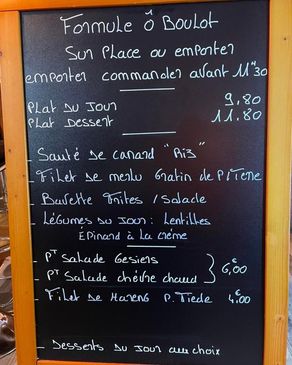 Formule Ô Boulot
Sur Place ou emporter
emporter commander avant 11H30
Plat du Jour 9,80
Plat Dessert 11.80
- Sauté de canard "Riz"
- Filet de merlu Gratin de P.Terre
- Bavette Frites / Salade
- Légumes du Jour : Lentilles
Épinard à La Crème
- PT Salade Gesiers
- PT Salade chèvre chaud } 6,00
- Filet de Hareng P. Tiede 4€00
- Desserts du Jour au choix